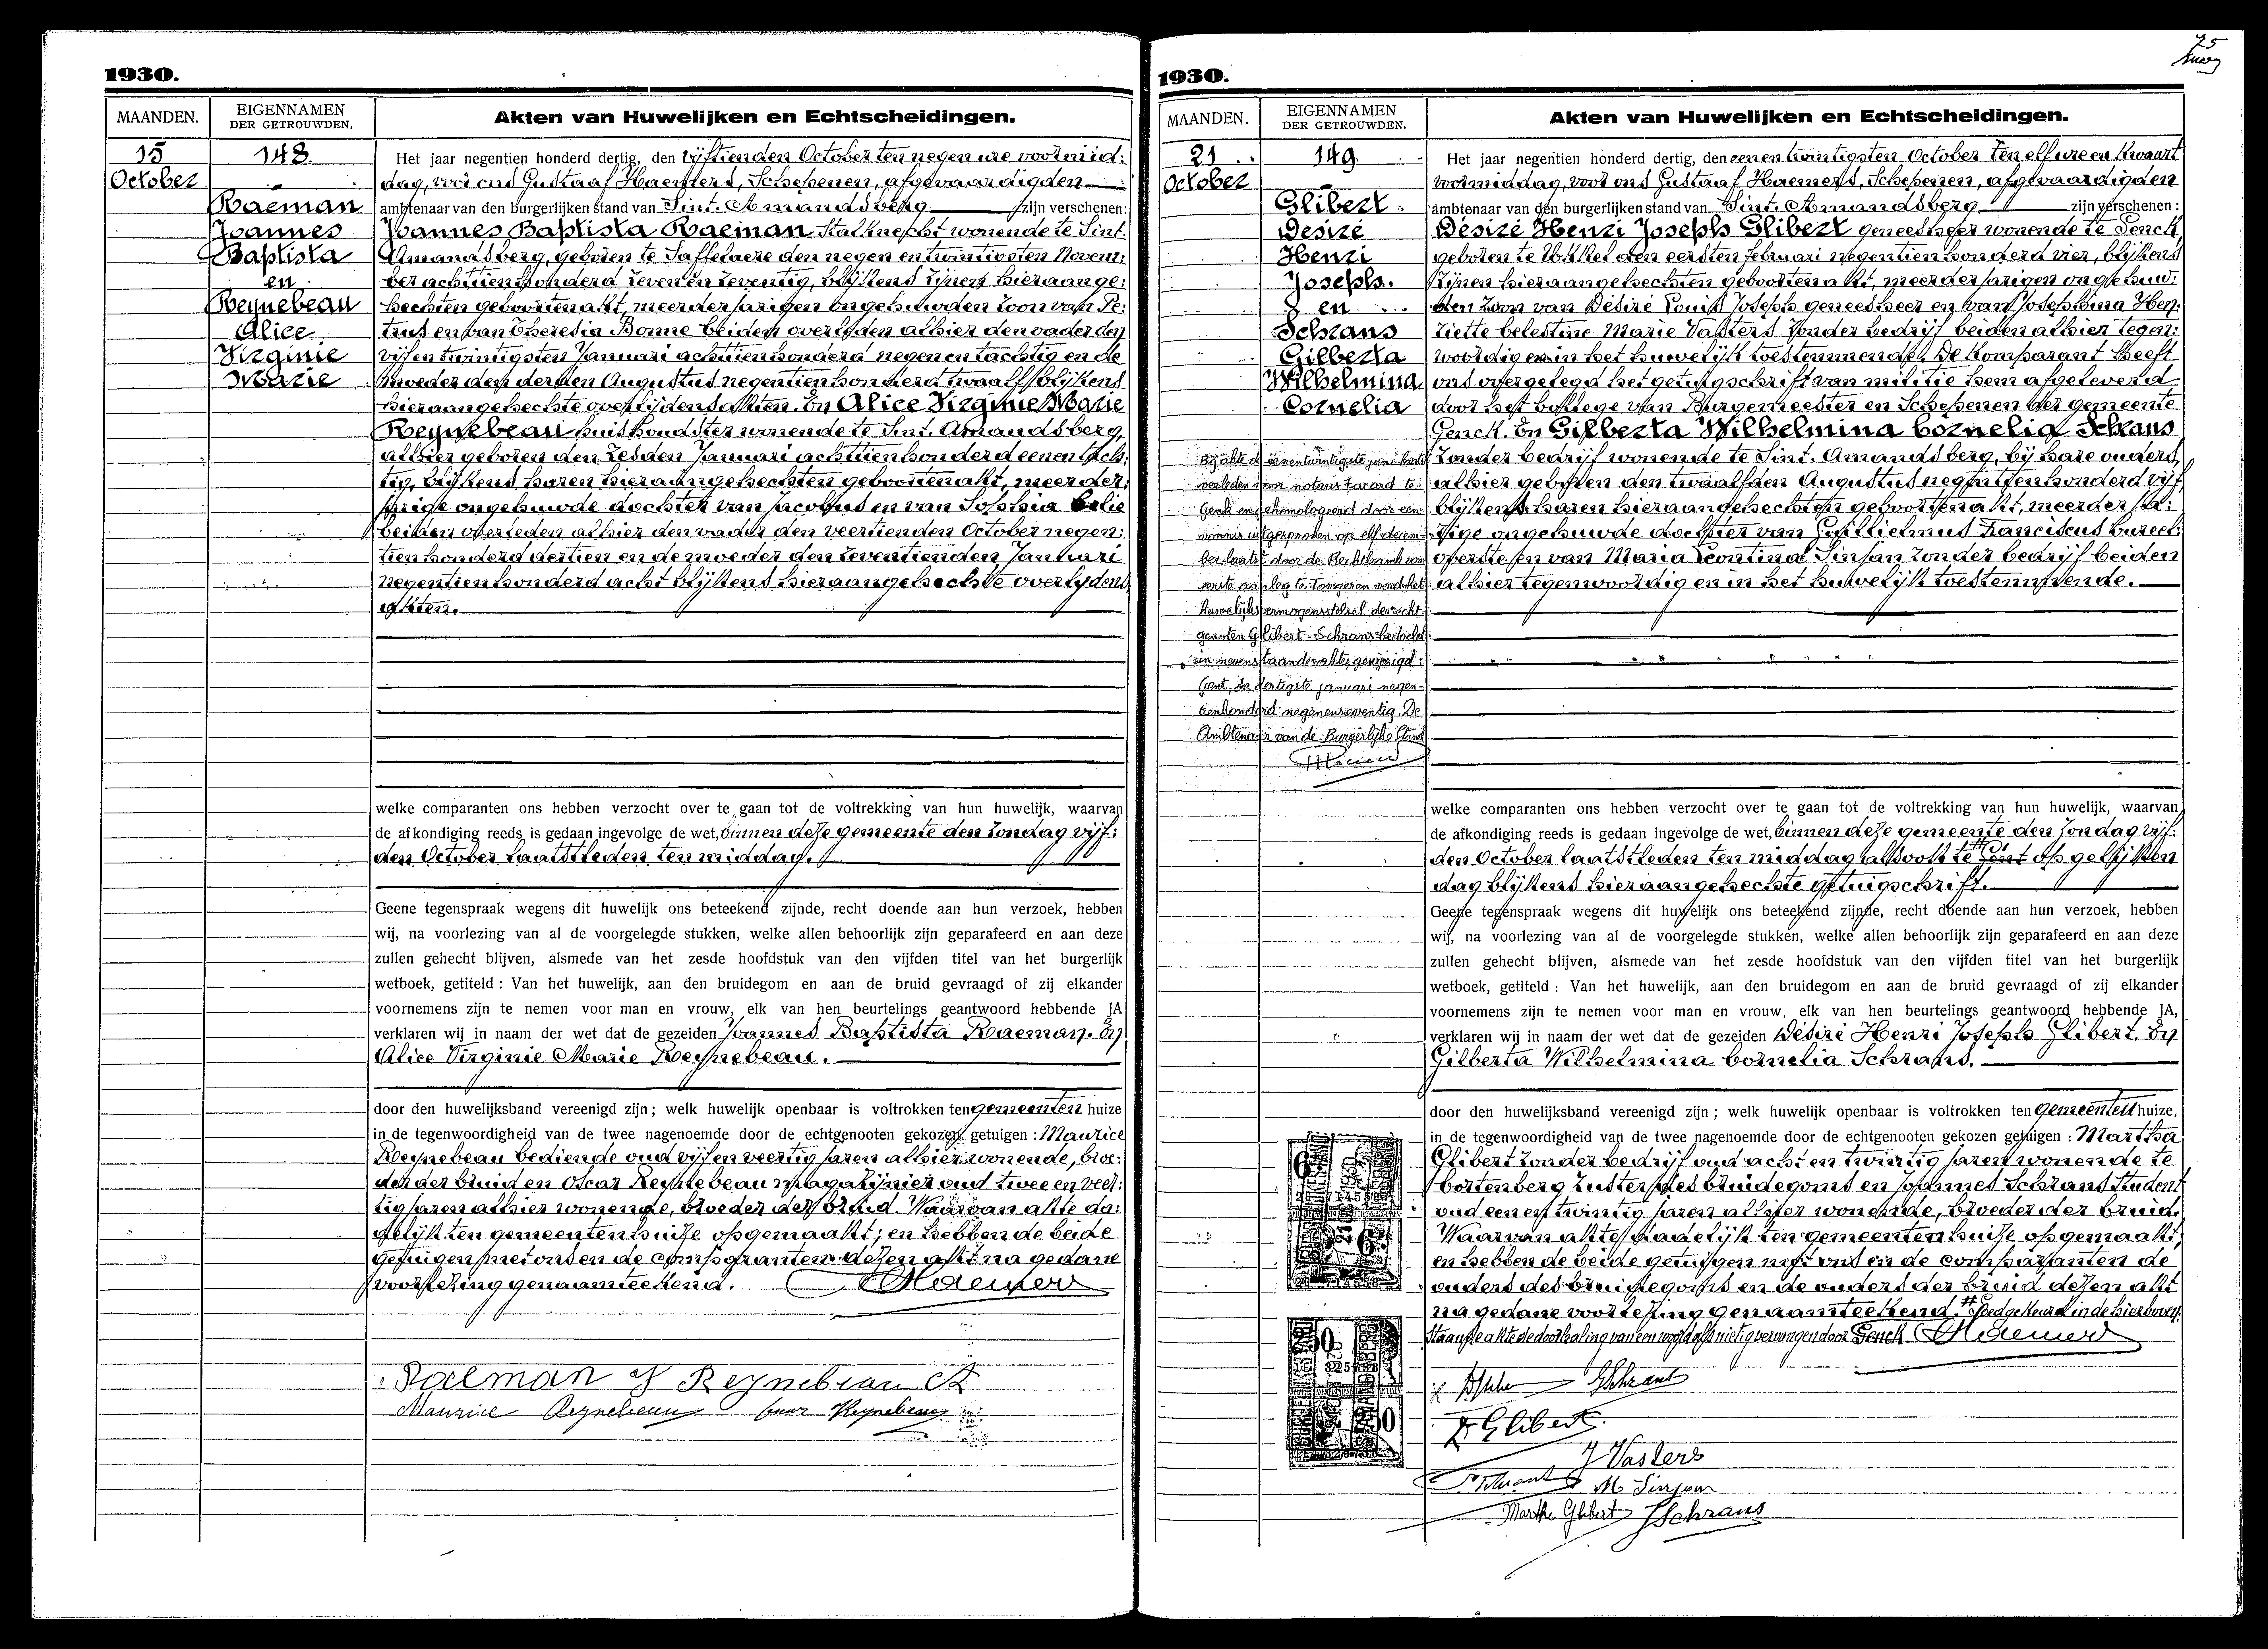 1930.
MAANDEN.
EIGENNAMEN
DER GETROUWDEN,
Akten van Huwelijken en Echtscheidingen.
15
October
148.
Raeman
Joannes
Baptista
en
Reynebeau
Alice
Virginie
Marie
Het jaar negentien honderd dertig, den vijftienden October ten negen ure voormid:
dag, voor ons Gustaaf Haemers, Schepenen, afgevaardigden
ambtenaar van den burgerlijken stand van Sint. Amandsberg zijn verschenen:
Joannes Baptista Raeman stalknecht wonende te Sint.
Amandsberg, geboren te Saffelaere den negen en twintigsten Novem:
ber achttienhonderd zeven en zeventig, blijkens zijnen hieraange:
hechten geboortenakt, meerderjarigen ongehuwden zoon van Pe:
trus en van Theresia Bonne beiden overleden alhier den vader den
vijfentwintigsten Januari achttienhonderd negenentachtig en de
moeder den derden Augustus negentienhonderd twaalf blijkens
hieraangehechte overlijdensakten. En Alice Virginie Marie
Reynebeau huishoudster wonende te Sint. Amandsberg,
alhier geboren den zesden Januari achttienhonderd eenentach:
tig, blijkens haren hieraangehechten geboortenakt, meerder:
jarige ongehuwde dochter van Jacobus en van Sophia Celie
beiden overleden alhier den vader den veertienden October negen:
tienhonderd dertien en de moeder den zeventienden Januari
negentienhonderd acht blijkens hieraangehechte overlijdens
akten.
welke comparanten ons hebben verzocht over te gaan tot de voltrekking van hun huwelijk, waarvan
de afkondiging reeds is gedaan ingevolge de wet, binnen deze gemeente den zondag vijf:
den October laatstleden ten middag.
Geene tegenspraak wegens dit huwelijk ons beteekend zijnde, recht doende aan hun verzoek, hebben
wij, na voorlezing van al de voorgelegde stukken, welke allen behoorlijk zijn geparafeerd en aan deze
zullen gehecht blijven, alsmede van het zesde hoofdstuk van den vijfden titel van het burgerlijk
wetboek, getiteld : Van het huwelijk, aan den bruidegom en aan de bruid gevraagd of zij elkander
voornemens zijn te nemen voor man en vrouw, elk van hen beurtelings geantwoord hebbende JA
verklaren wij in naam der wet dat de gezeiden Joannes Baptista Raeman. En
Alice Virginie Marie Reynebeau.
door den huwelijksband vereenigd zijn ; welk huwelijk openbaar is voltrokken ten gemeenten huize
in de tegenwoordigheid van de twee nagenoemde door de echtgenooten gekozen getuigen : Maurice
Reynebeau bediende oud vijfenveertig jaren alhier wonende, broe:
der der bruid en Oscar Reynebeau magazijnier oud twee en veer:
tig jaren alhier wonende, broeder der bruid. Waarvan akte da:
delijk ten gemeentenhuize opgemaakt; en hebben de beide
getuigen met ons en de comparanten dezen akt na gedane
voorlezing genaamteekend. Haemers
Raeman J Reynebeau A
Maurice Reynebeau Reynebeau
75
1930.
MAANDEN.
EIGENNAMEN
DER GETROUWDEN.
Akten van Huwelijken en Echtscheidingen.
21
October
149.
Glibert
Désiré
Henri
Joseph.
en
Schrans
Gilberta
Wilhelmina
Cornelia
Bij akte d éénentwintigste juni
verleden voor notaris Facard te
Genk en gehomologeerd door een
vonnis uitgesproken op elf decem-
ber laatst door de Rechtbank van
eerste aanleg te Tongeren werd het
huwelijksvermogensstelsel der echt-
genoten Glibert-Schrans bedoeld
in nevenstaande akte, gewijzigd.
Gent, de dertigste januari negen-
tienhonderd negenenzeventig. De
Ambtenaar van de Burgerlijke Stand
Het jaar negentien honderd dertig, den eenentwintigsten October ten elf ure en kwaart
voormiddag, voor ons Gustaaf Haemers, Schepenen, afgevaardigden
ambtenaar van den burgerlijken stand van Sint. Amandsberg zijn verschenen :
Désiré Henri Joseph Glibert geneesheer wonende te Genck,
geboren te Ukkel den eersten februari negentienhonderd vier, blijkens
zijnen hieraangehechten geboortenakt, meerderjarigen ongehuw:
den zoon van Désiré Louis Joseph geneesheer en van Josephina Hen:
riette Celestine Marie Vasters zonder bedrijf beiden alhier tegen:
woordig en in het huwelijk toestemmende. De komparant heeft
ons overgelegd het getuigschrift van militie hem afgeleverd
door het College van Burgemeester en Schepenen der gemeente
Genck. En Gilberta Wilhelmina Cornelia Schrans
zonder bedrijf wonende te Sint. Amandsberg, bij hare ouders,
alhier geboren den twaalfden Augustus negentienhonderd vijf
blijkens haren hieraangehechten geboortenakt, meerderja:
rige ongehuwde dochter van Guillielmus Franciscus bureel:
overste en van Maria Leontina Sinjan zonder bedrijf beiden
alhier tegenwoordig en in het huwelijk toestemmende.
welke comparanten ons hebben verzocht over te gaan tot de voltrekking van hun huwelijk, waarvan
de afkondiging reeds is gedaan ingevolge de wet, binnen deze gemeente den zondag vijf:
den October laatstleden ten middag alsook te Gent op gelijken
dag blijkens hieraangehechte getuigschrift.
Geene tegenspraak wegens dit huwelijk ons beteekend zijnde, recht doende aan hun verzoek, hebben
wij, na voorlezing van al de voorgelegde stukken, welke allen behoorlijk zijn geparafeerd en aan deze
zullen gehecht blijven, alsmede van het zesde hoofdstuk van den vijfden titel van het burgerlijk
wetboek, getiteld : Van het huwelijk, aan den bruidegom en aan de bruid gevraagd of zij elkander
voornemens zijn te nemen voor man en vrouw, elk van hen beurtelings geantwoord hebbende JA,
verklaren wij in naam der wet dat de gezeiden Désiré Henri Joseph Glibert. En
Gilberta Wilhelmina Cornelia Schrans.
door den huwelijksband vereenigd zijn ; welk huwelijk openbaar is voltrokken ten gemeenten huize,
in de tegenwoordigheid van de twee nagenoemde door de echtgenooten gekozen getuigen : Martha
Glibert zonder bedrijf oud acht en twintig jaren wonende te
Cortenberg zuster des bruidegoms en Johannes Schrans student
oud eenentwintig jaren alhier wonende, broeder der bruid.
Waarvan akte dadelijk ten gemeentenhuize opgemaakt;
en hebben de beide getuigen met ons en de comparanten de
ouders des bruidegoms en de ouders der bruid dezen akt
na gedane voorlezing genaamteekend. # Goedgekeurd in de hierboven
staande akte de doorhaling van een woord als nietig vervangen door Genck. Haemers
GSchrans
Glibert
J Vasters
Schrans M. Sinjan
Marthe Glibert JSchrans